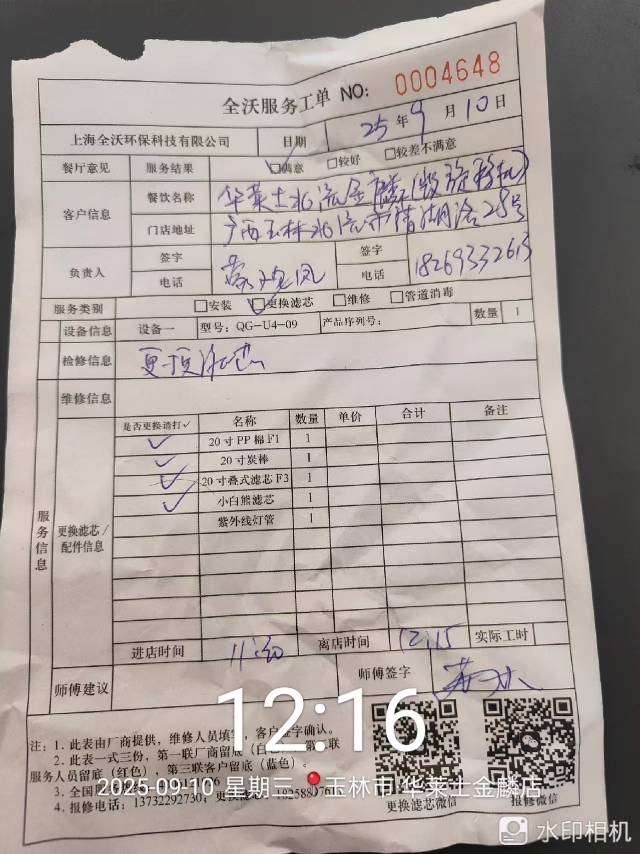 全沃服务工单 NO: 0004648
上海全沃环保科技有限公司 日期 25年9月10日
餐厅意见 服务结果 ☑满意 □较好 □较差不满意
客户信息 餐饮名称 华莱士北流金麟
门店地址 广西玉林北流市 28号
负责人 签字 签字
电话 电话 18269332613
服务类别 □安装 ☑更换滤芯 □维修 □管道消毒
设备信息 设备一 型号: QG-U4-09 产品序列号: 数量 1
检修信息 更换滤芯
维修信息
服务信息
更换滤芯/配件信息
是否更换请打✓ 名称 数量 单价 合计 备注
✓ 20寸PP棉F1 1
✓ 20寸炭棒 1
✓ 20寸叠式滤芯F3 1
✓ 小白熊滤芯 1
紫外线灯管 1
进店时间 离店时间 12:15 实际工时
师傅建议 师傅签字
12:16
注: 1. 此表由厂商提供，维修人员填写，客户签字确认。
2. 此表一式三份，第一联厂商留底（白 第二联
服务人员留底（红色），第三联客户留底（蓝色）。
3. 全国
2025-09-10 星期三 玉林市·华莱士金麟店
4. 报修电话: 13732292730; 更换滤芯
更换滤芯微信 报修微信
水印相机